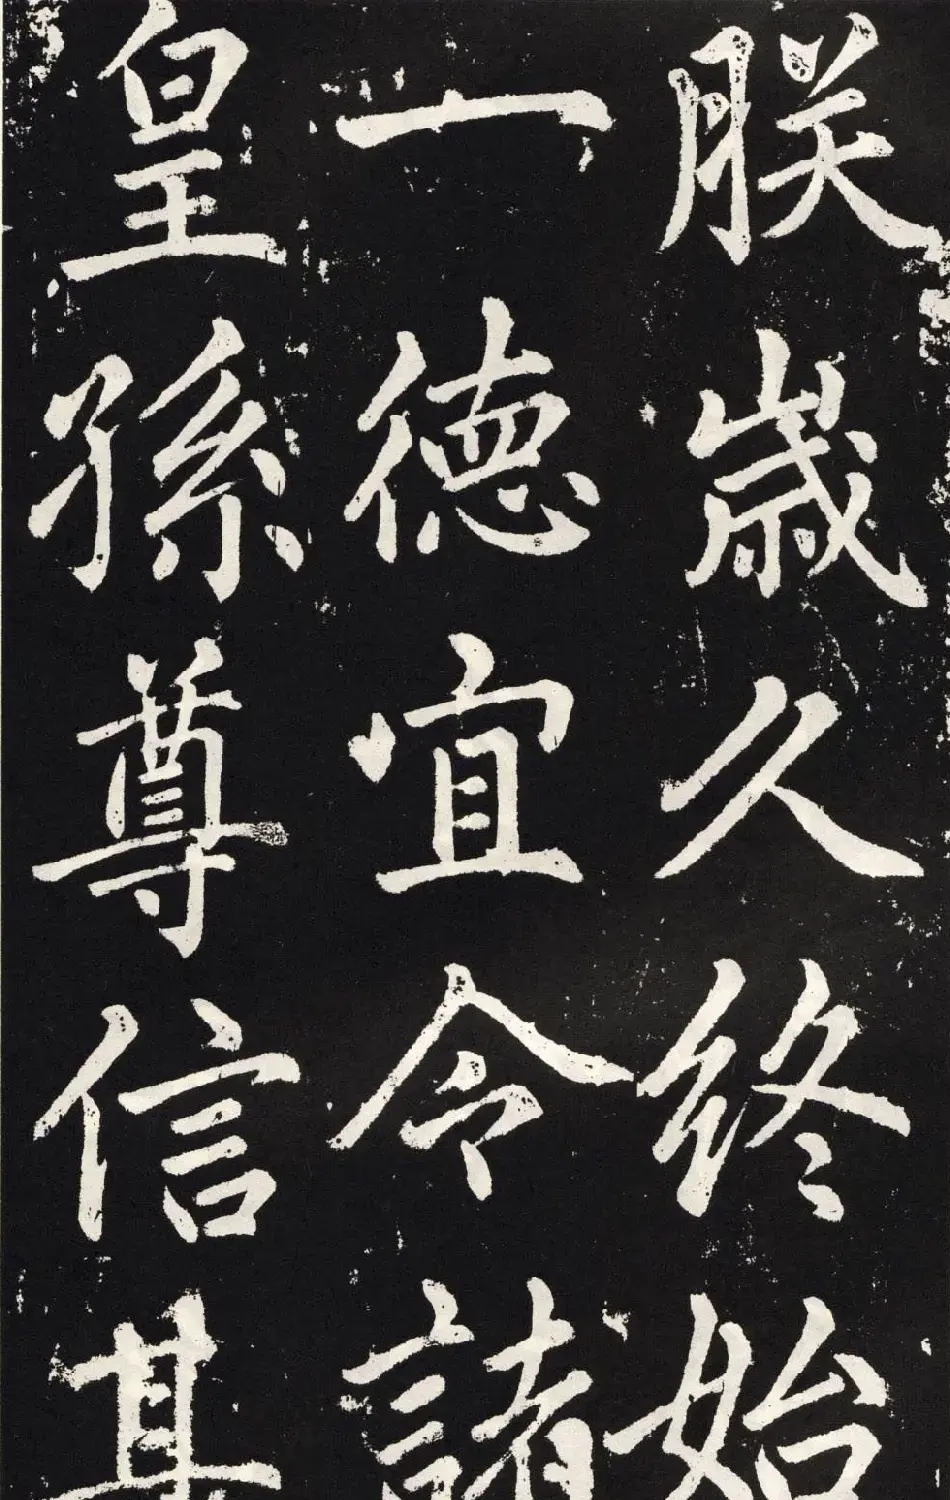 朕歲久終始
一德宜令諸
皇孫尊信其